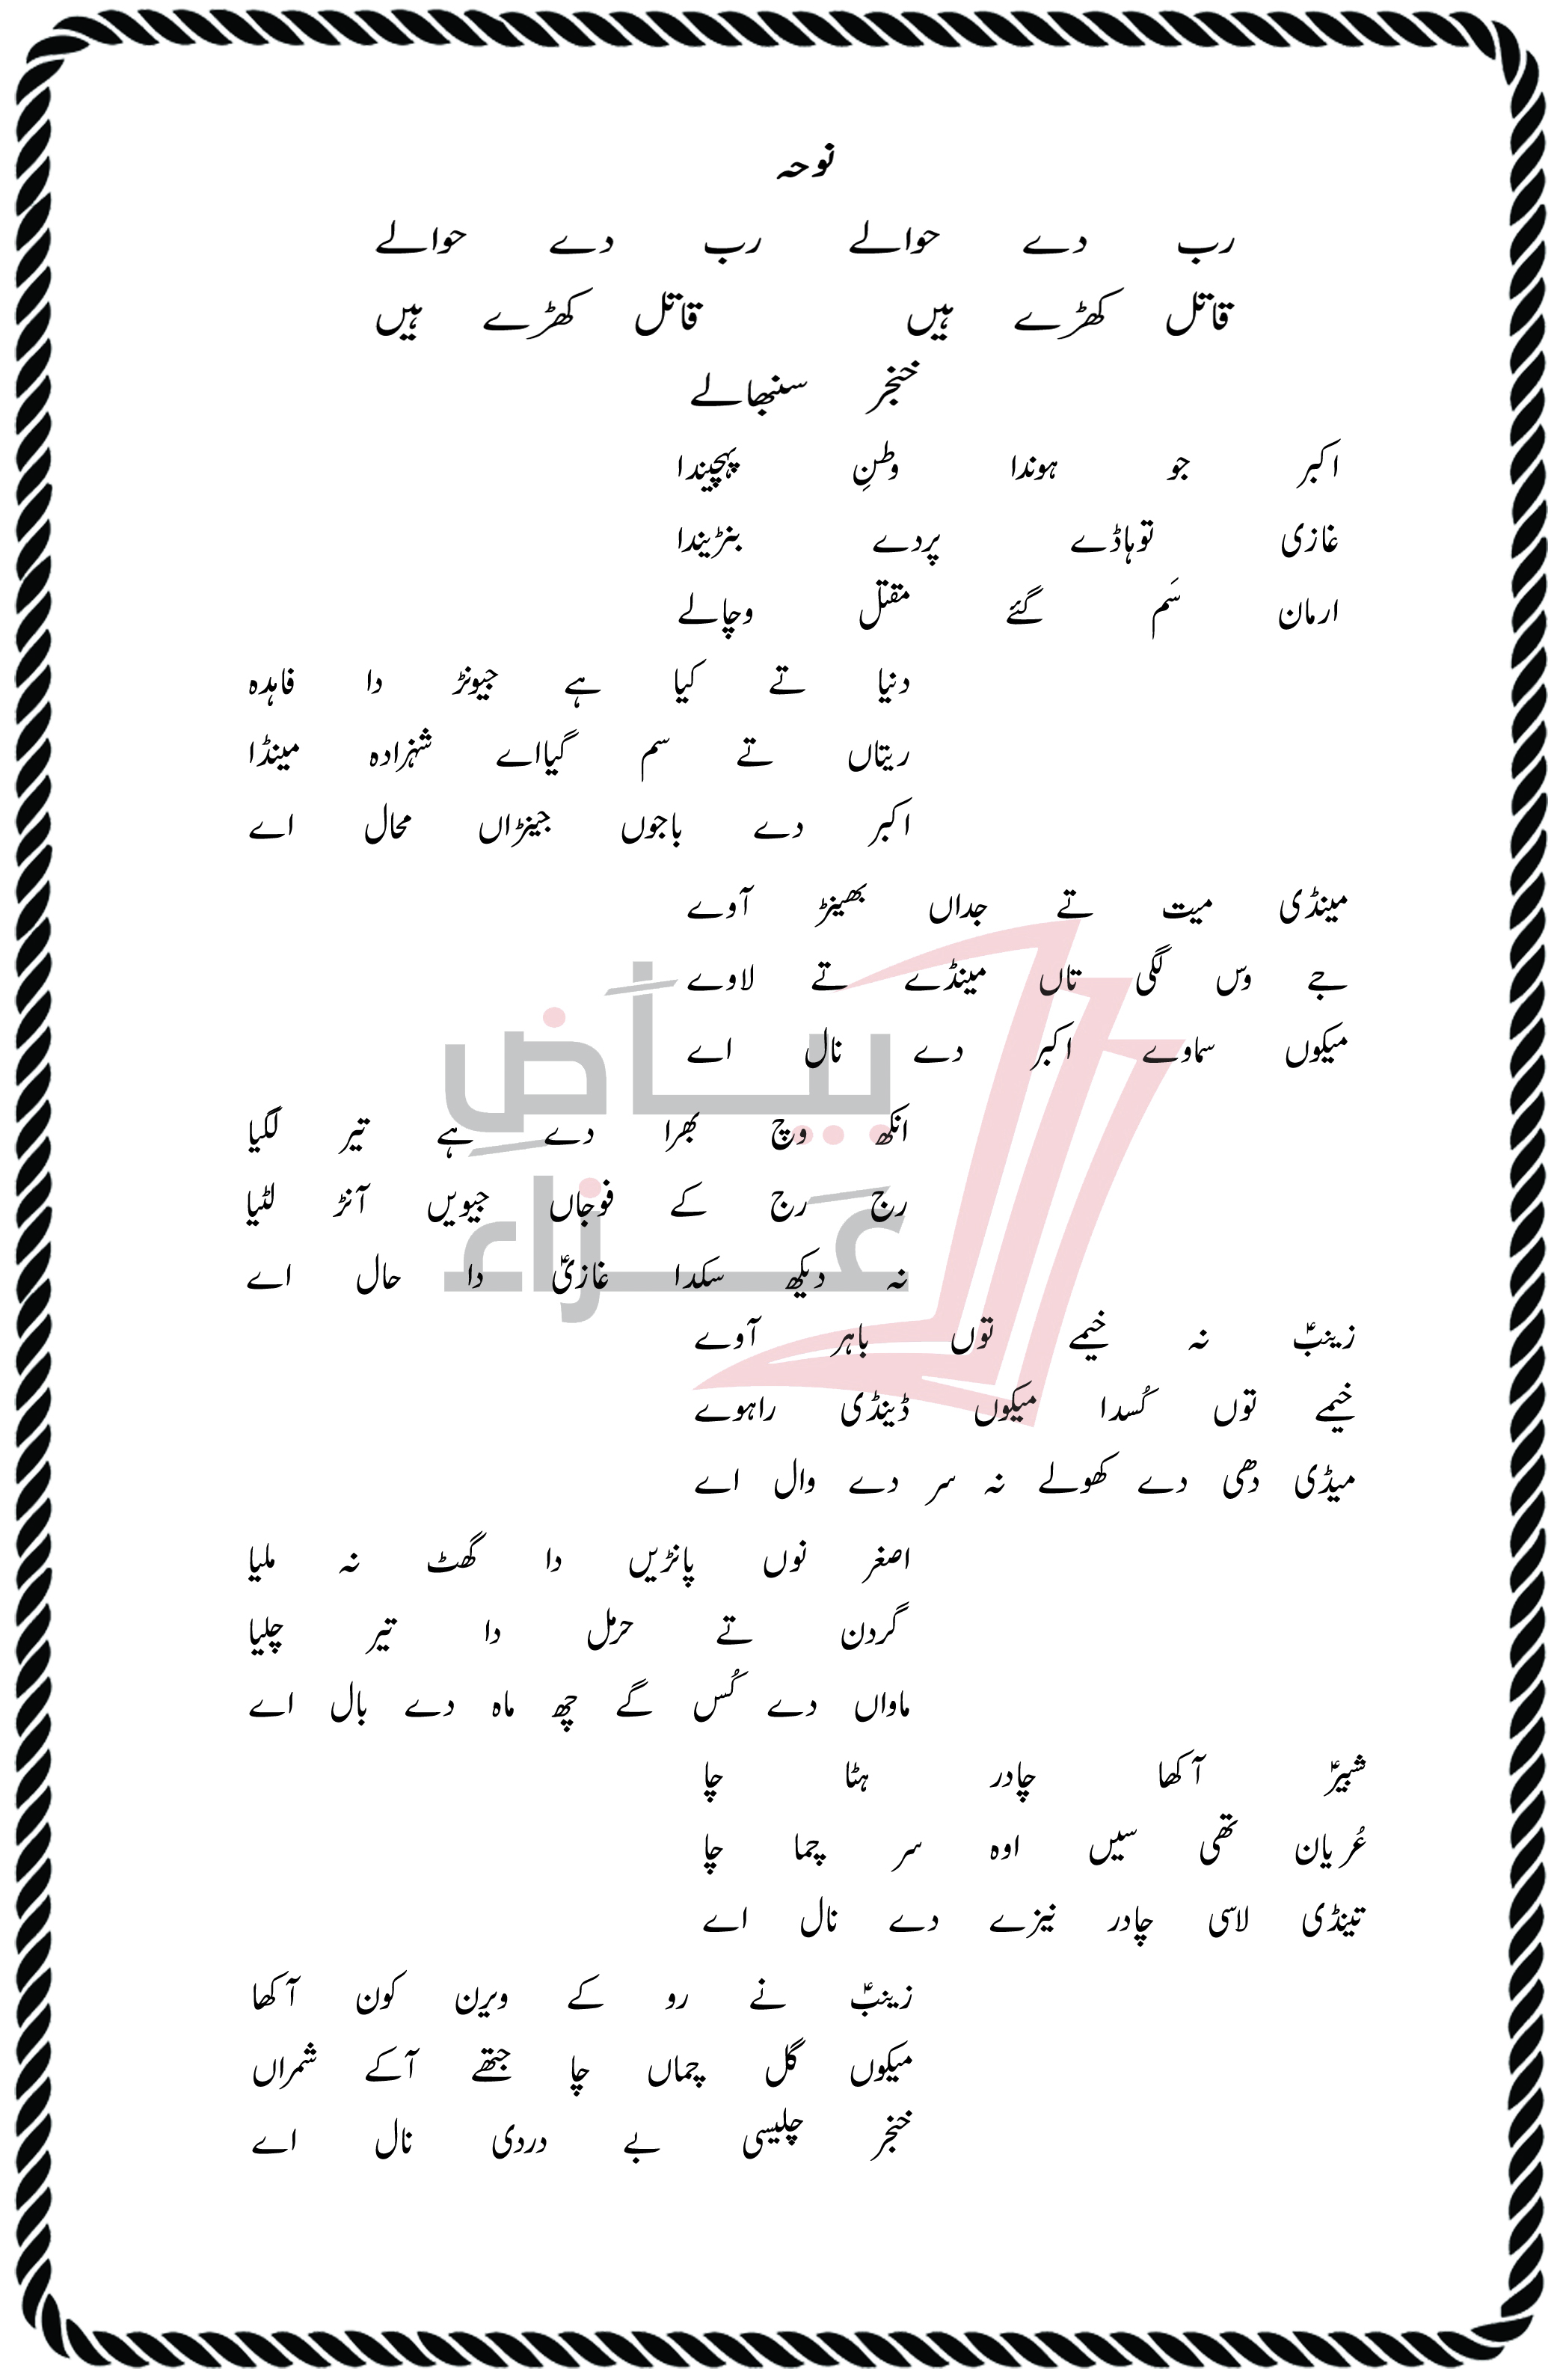 نوحہ
رب دے حوالے رب دے حوالے
قاتل کھڑے ہیں قاتل کھڑے ہیں
خنجر سنبھالے
اکبر جو ہوندا وطنِ پہچیندا
غازی توہاڈے پردے بنڑیندا
ارمان سَم گئے مقتل وچالے
دنیا تے کیا ہے جیونڑ دا فاہدہ
ریتاں تے سم گیااے شہزادہ مینڈا
اکبر دے باجوں جینڑاں محال اے
مینڈی میت تے جداں بھینڑ آوے
جے وس لگی تاں مینڈے تے لاوے
میکوں سماوے اکبر دے نال اے
انکھ وچ بھرا دے ہے تیر لگیا
رج رج کے فوجاں جیویں آنڑ لٹیا
نہ دیکھ سکدا غازیؑ دا حال اے
زینبؑ نہ خیمے توں باہر آوے
خیمے توں کُسدا میکوں ڈینڈی راہوے
میڈی دھی دے کھولے نہ سر دے وال اے
اصغر نوں پانڑیں دا گھٹ نہ ملیا
گردن تے حرمل دا تیر چلیا
ماواں دے کُس گے چھ ماہ دے بال اے
شبیرؑ آکھا چادر ہٹا چا
عُریان تھی سیں اوہ سر چما چا
تینڈی لاسی چادر نیزے دے نال اے
زینبؑ نے رو کے ویرن کون آکھا
میکوں گل چماں چا جتھے آکے شمراں
خنجر چلیسی بے دردی نال اے
بیاَضِ
عَزاء